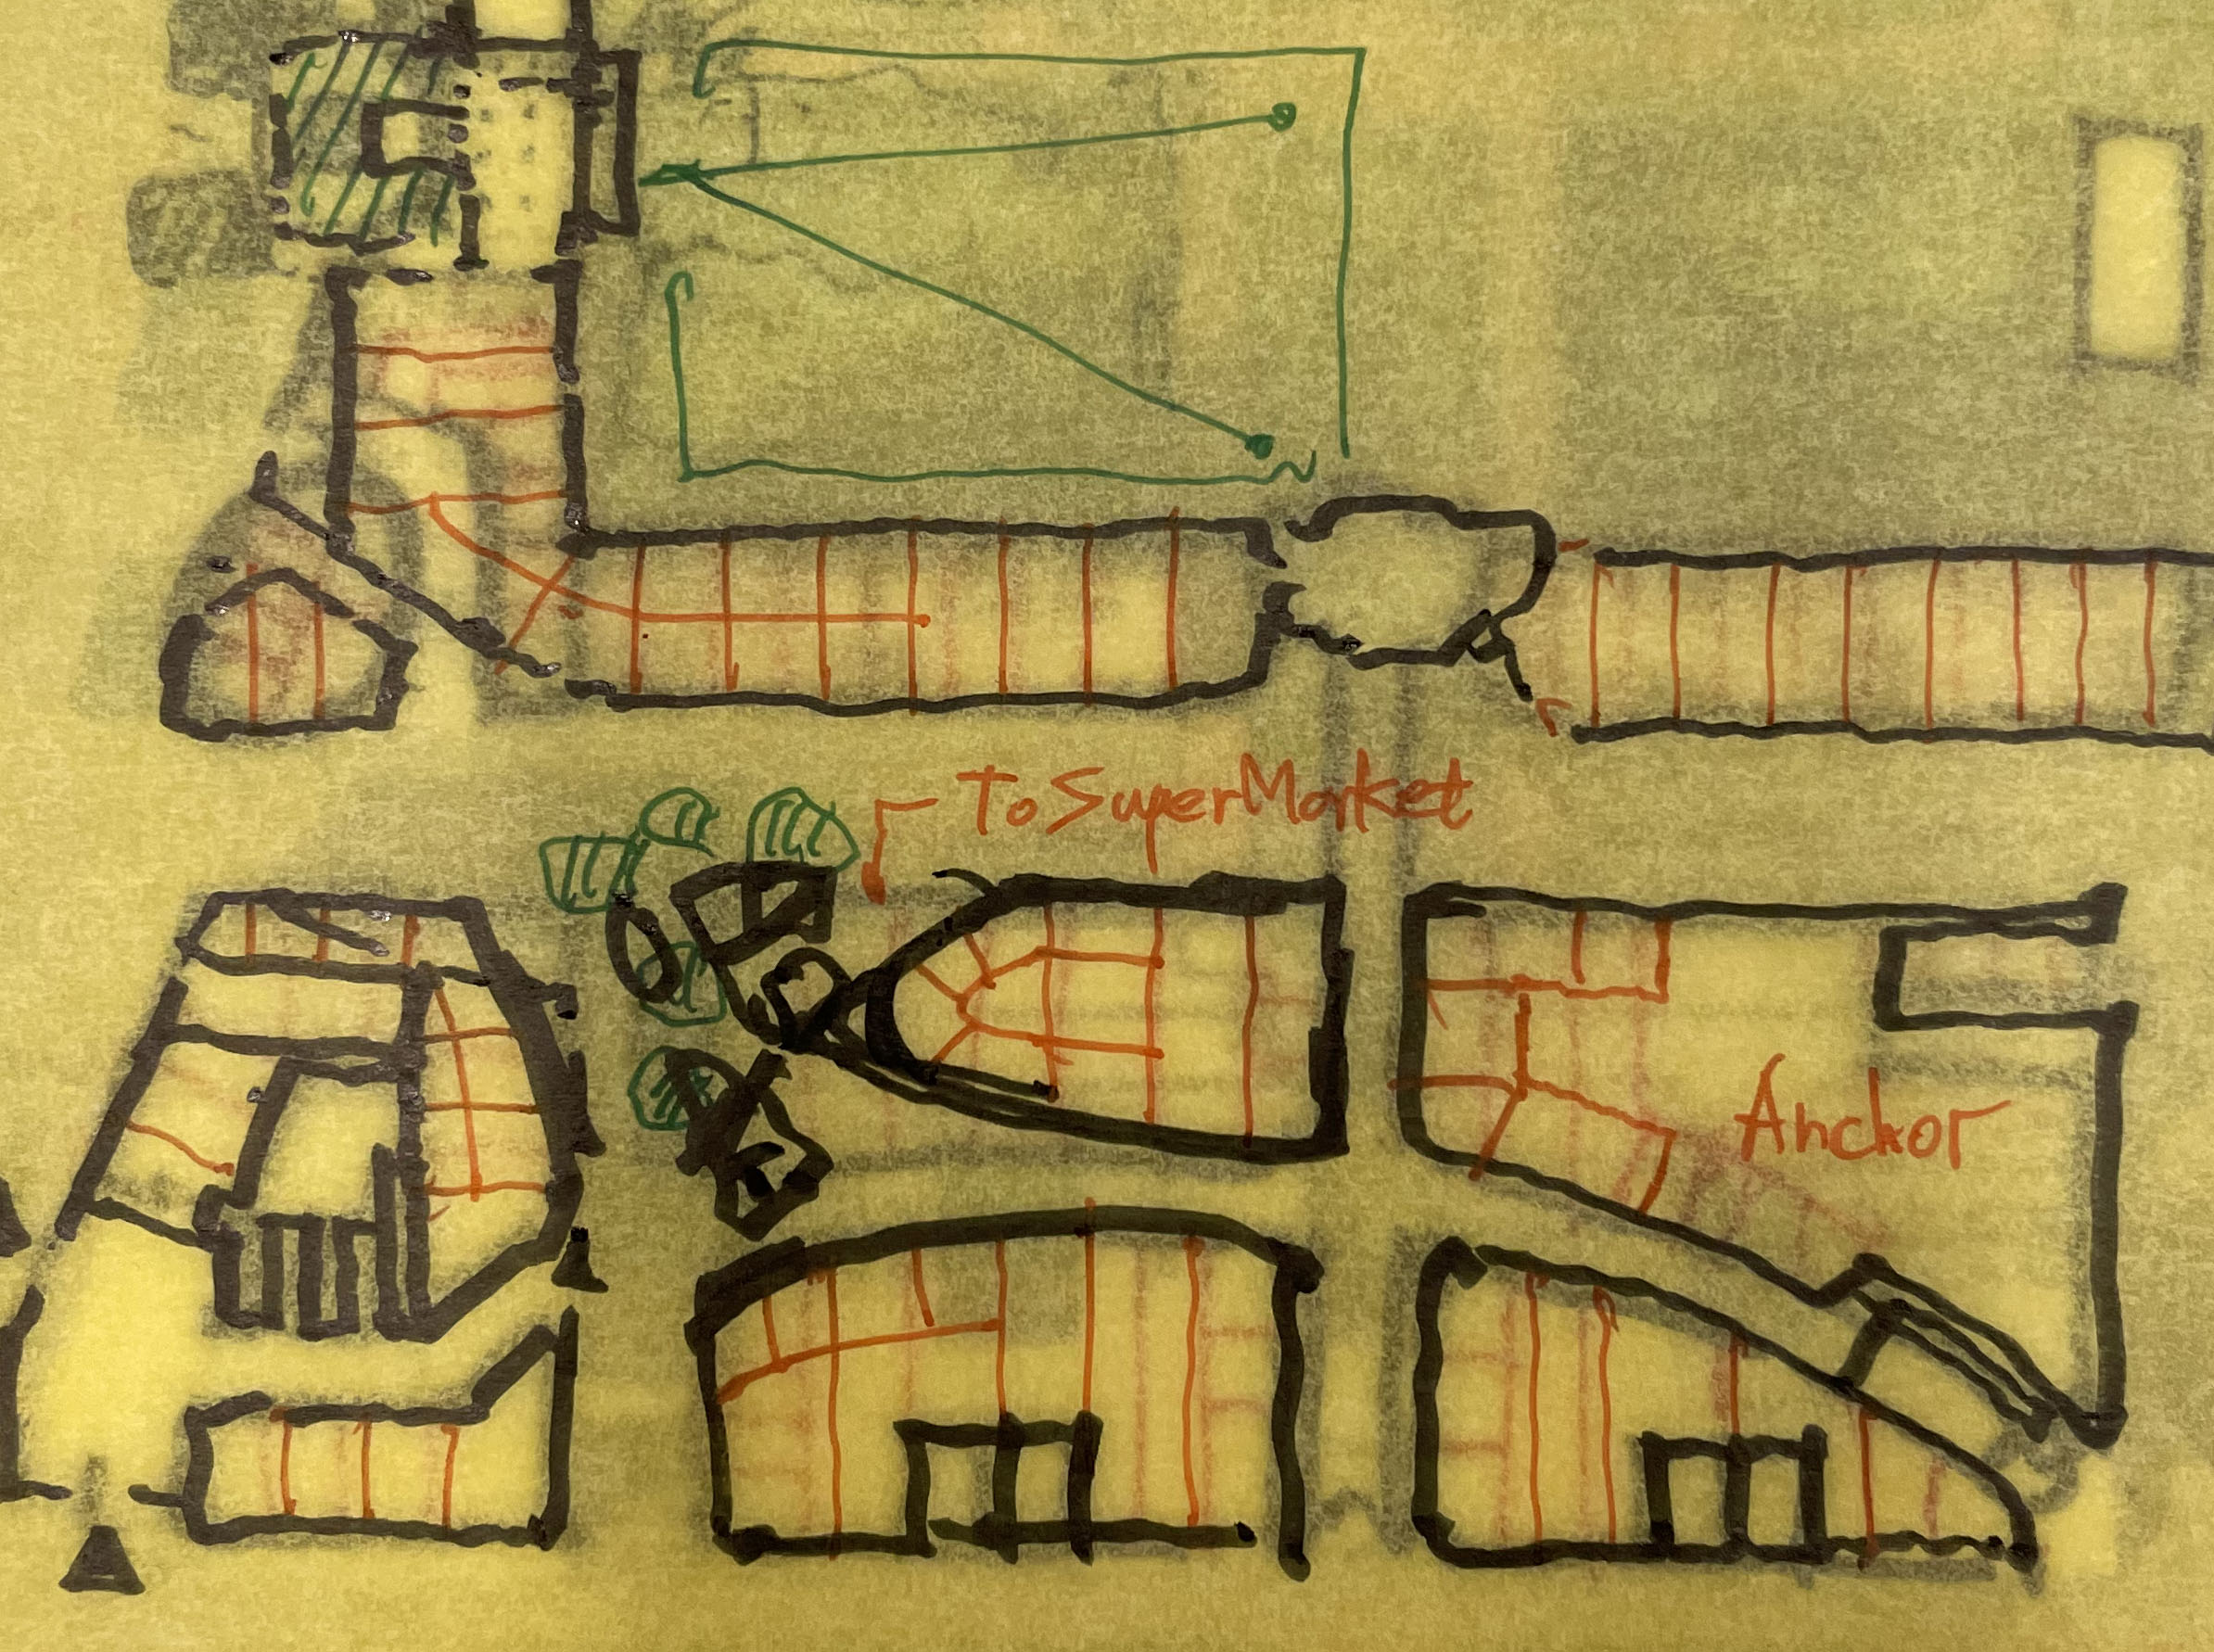 To SuperMarket
Anchor